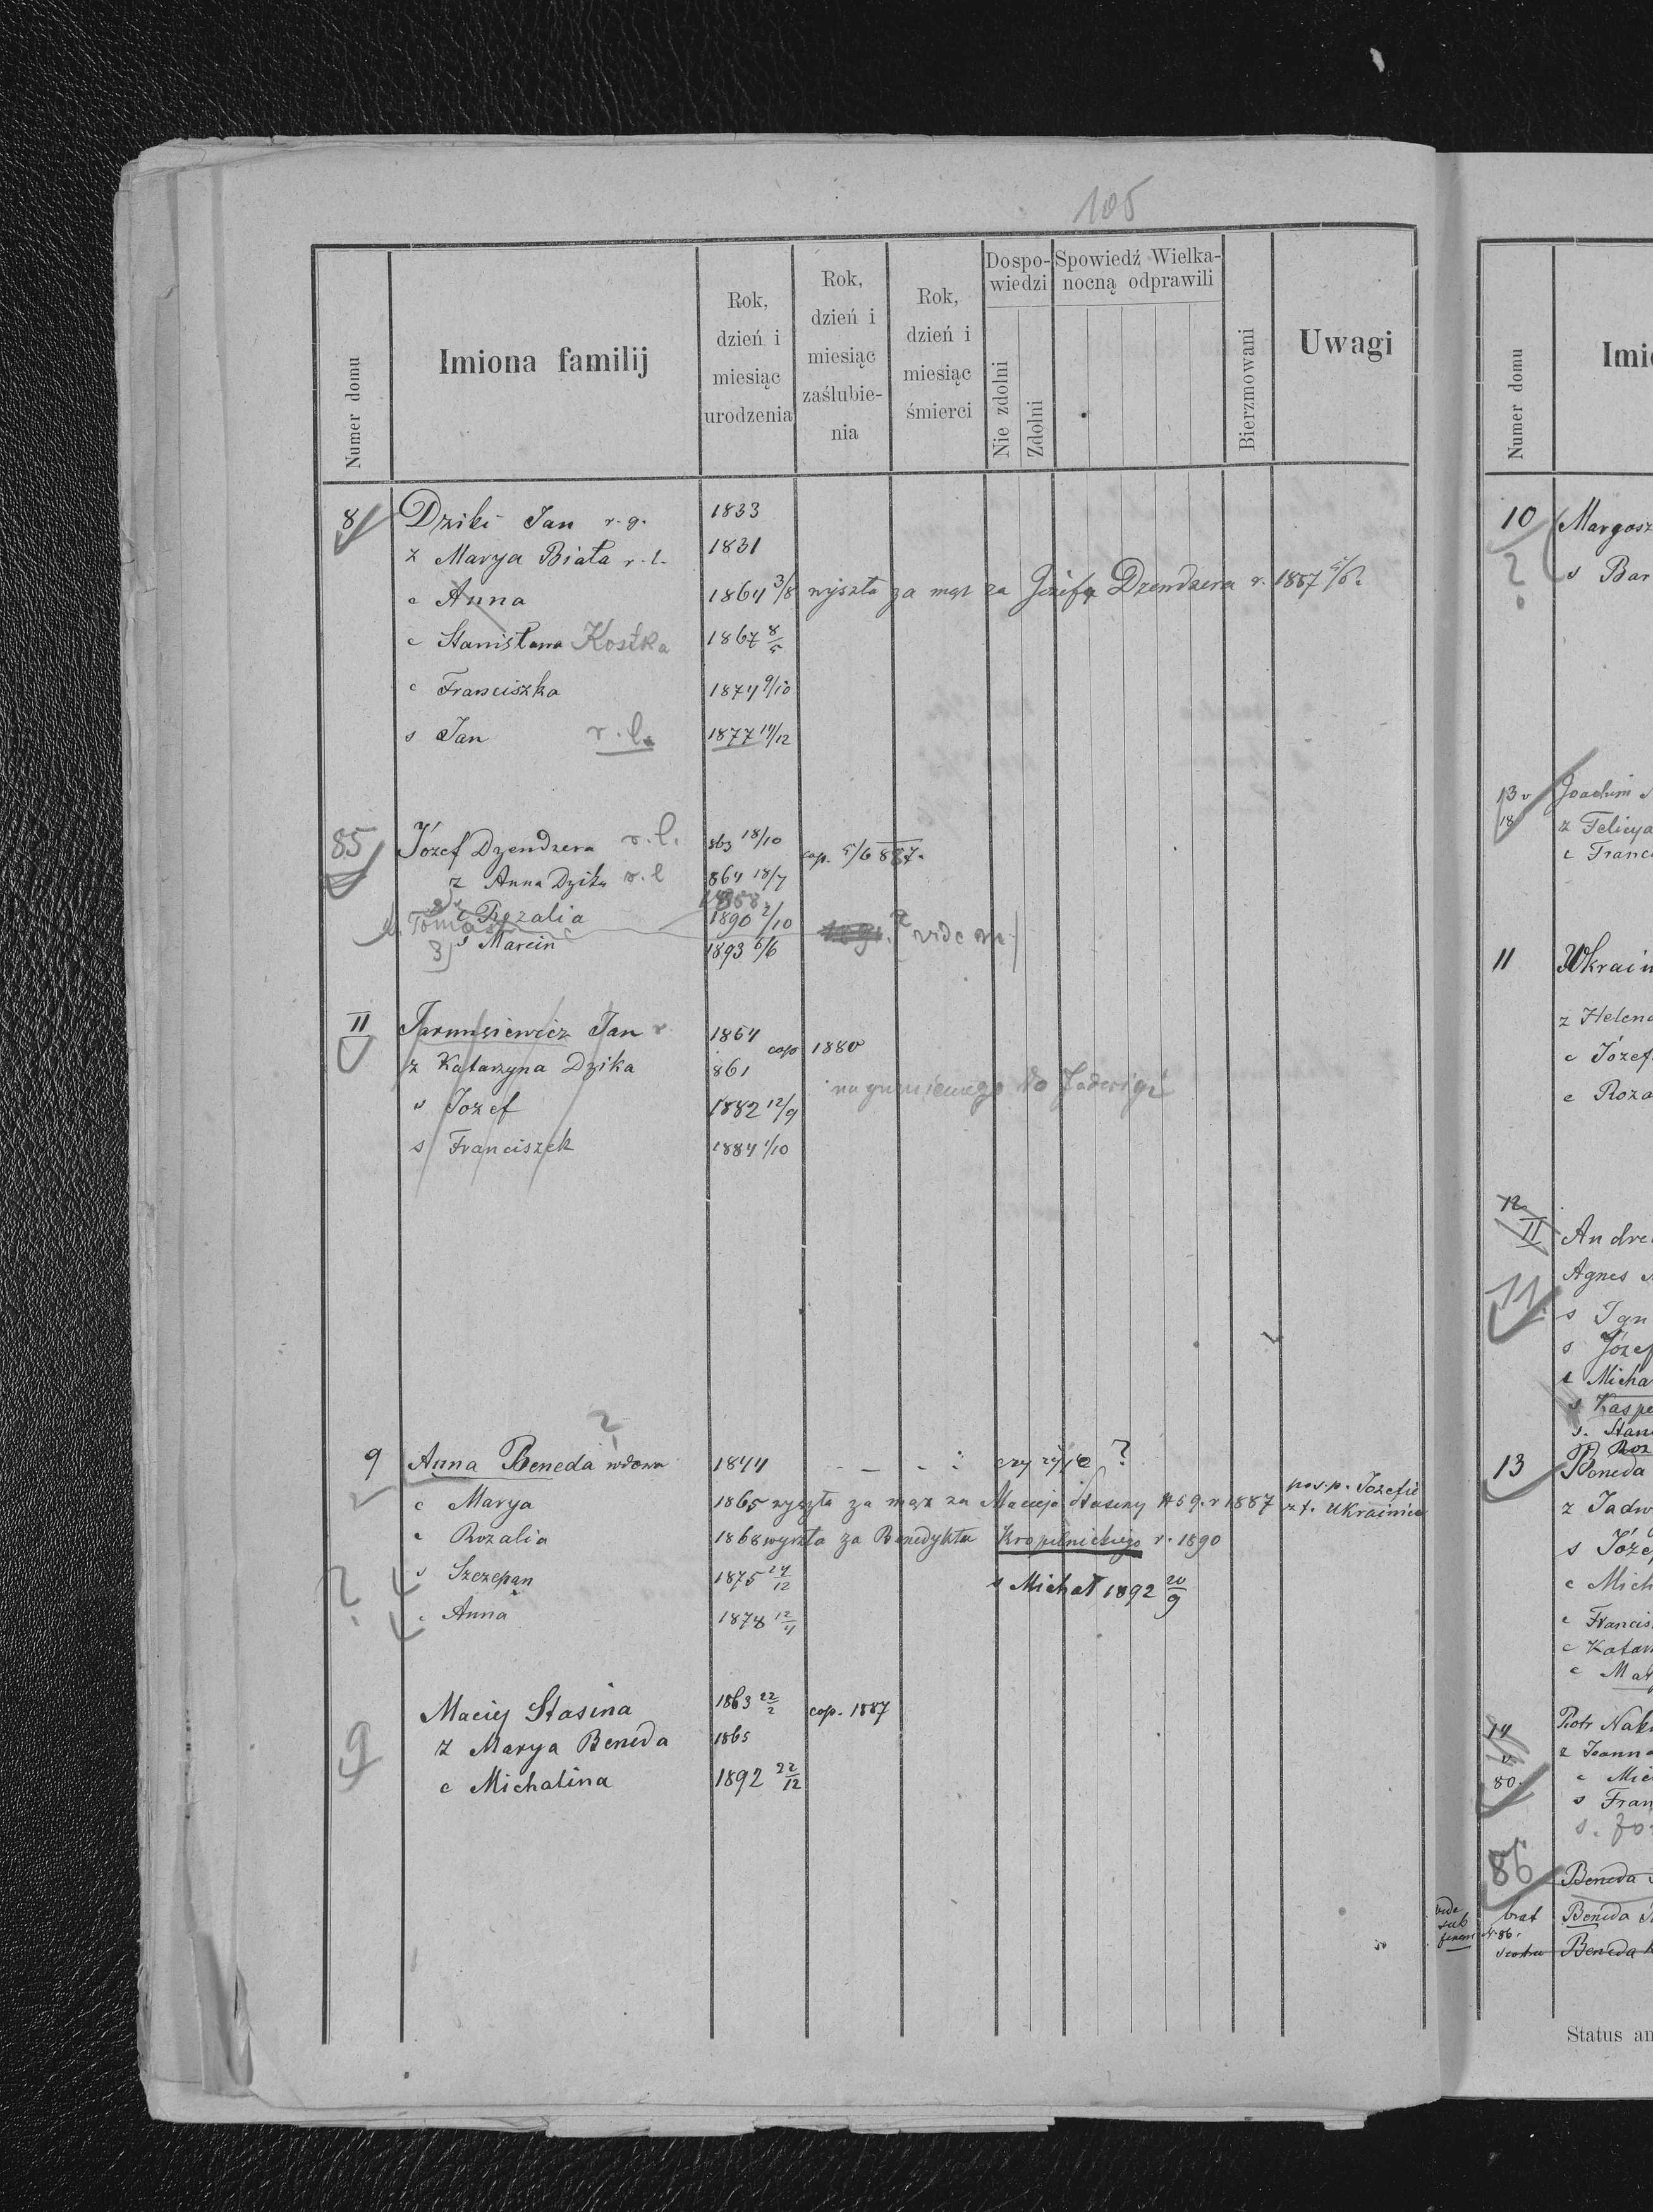 105
Numer domu
Imiona familij
Rok, dzień i miesiąc urodzenia
Rok, dzień i miesiąc zaślubienia
Rok, dzień i miesiąc śmierci
Dospowiedzi
Nie zdolni
Zdolni
Spowiedź Wielkanocną odprawili
Bierzmowani
Uwagi
8 Dziki Jan r. g. 1833
z Marya Biała r. l. 1831
c Anna 1864 3/8 wyszła za mąż za Józefa Dzendzera r. 1887 5/6
c Stanisława Kostka 1867 8/5
c Franciszka 1874 9/10
s Jan r. l. 1877 14/12
85 Józef Dzendzera r. l. 863 18/10 cop. 5/6 887.
z Anna Dzika r. l 864 18/7
1858
2) c Rozalia 1890 2/10
Tomasz vide
3) s Marcin 1893 6/6
II Jarmusiewicz Jan r 1854 cop 1880
z Katarzyna Dzika 861
do Jadwigi
s Jozef 1882 12/9
s Franciszek 1884 1/10
?
9 Anna Beneda wdowa 1844 czy żyje ?
c Marya 1865 wyszła za mąż za Macieja Stasiny N 59. r 1887 pos. p. Jozefie z f. Ukrainiec
c Rozalia 1868 wyszła za Benedykta Kropilnickiego r. 1890
? s Szczepan 1875 24/12 s Michał 1892 20/9
c Anna 1878 12/4
Maciej Stasina 1863 22/2 cop. 1887
9 z Marya Beneda 1865
c Michalina 1892 22/12
Numer domu
Imi
10 Margosz
? s Bar
13 v 18 Joachim
z Felicya
c Franc
11 Ukrain
z Helena
c Józef
c Roza
12 II Andre
Agnes
11 s Ign
s Józef
c Micha
s Kaspe
s. Stan
Roz
13 Beneda
z Jadw
s Józe
c Mich
c Francis
c Katar
c Mar
14 v 80. Piotr Nak
z Joanna
c Mic
s Fran
s. Jó
86 Beneda
vide sub finem N. 86. brat Beneda
siostra Beneda
Status an